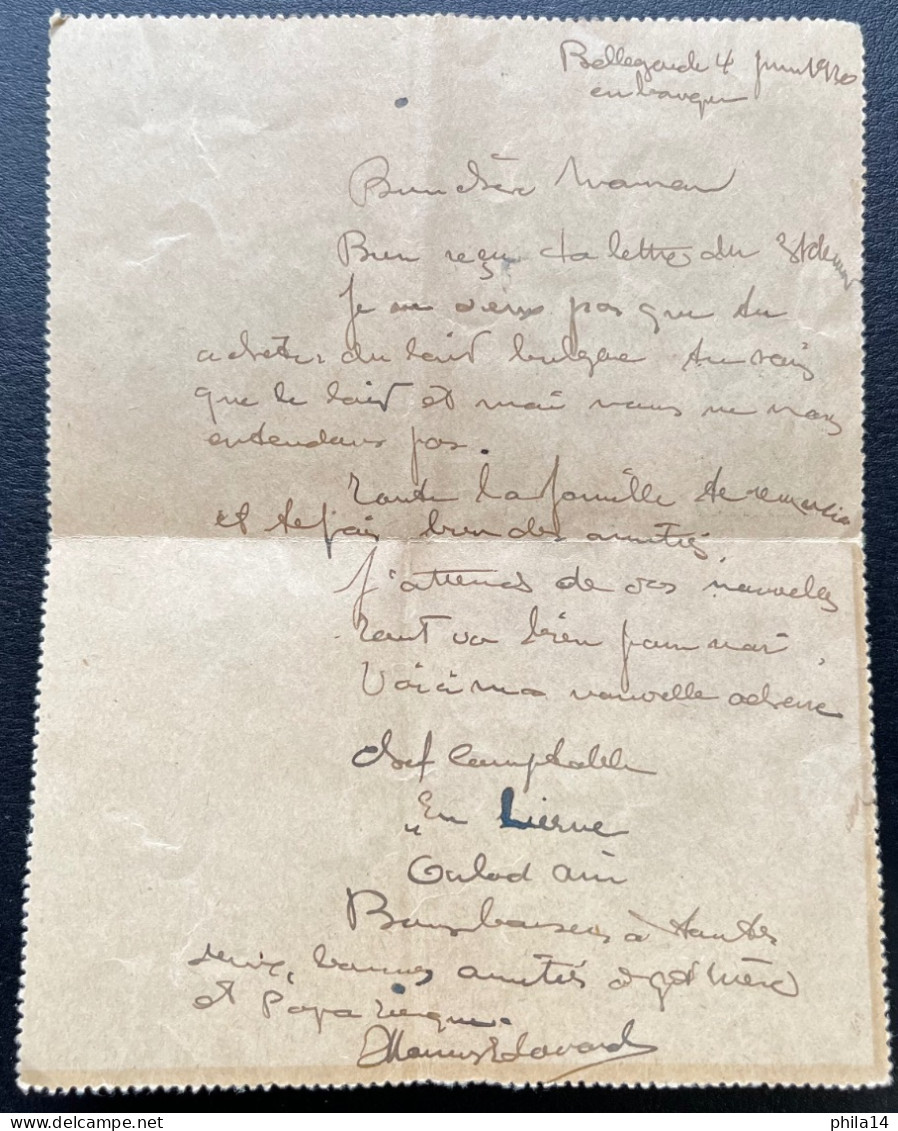 Bellegarde 4 juin 1930
en banque
Bien chère Maman
Bien reçu ta lettre du
Je ne veux pas que tu
achètes du lait bulgare tu sais
que le lait et moi nous ne nous
entendons pas.
Toute la famille te remercie
et te fais bien des amitiés
J'attends de vos nouvelles
Tout va bien pour moi,
Voici ma nouvelle adresse
chef comptable
"En Lierne
Culoz Ain
Bons baisers à toutes
deux, bonnes amitiés
et Papa
Edouard
philar4.com